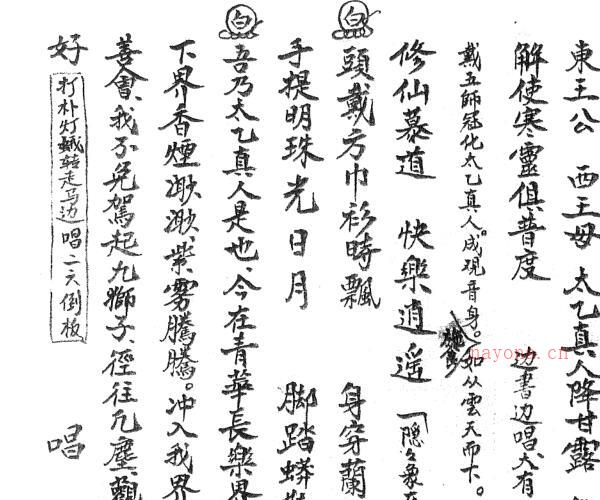 東王公 西王母 太乙真人降甘露
解使寒靈俱普度 边書边唱大有
戴五師冠化太乙真人。成观音身。如从雲天而下。
修仙慕道 快樂逍遥
白 頭戴方巾衫時飄 身穿蘭
手提明珠光日月 脚踏蟒
白 吾乃太乙真人是也、今在青華長樂界
下界香煙渺渺、紫雾騰騰。冲入我界
善會、我不免駕起九獅子、徑往凡塵、觀
好 打朴灯蛾轉走马边 唱二六倒板 唱
nayona.cn